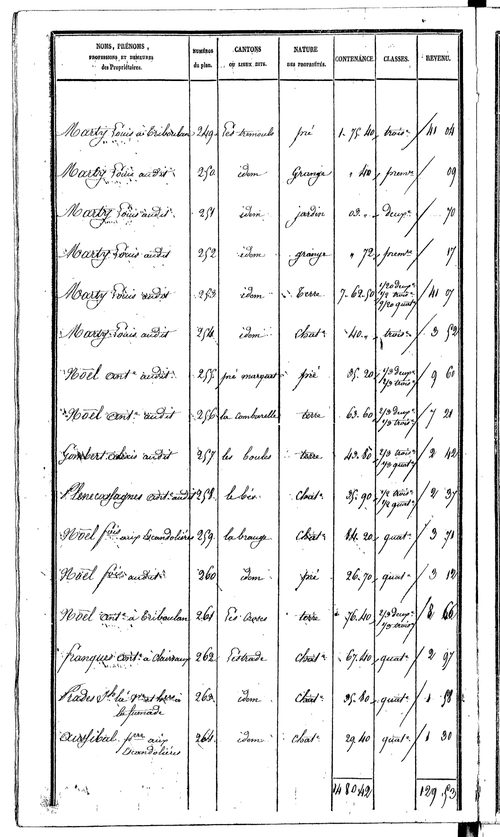 NOMS, PRÉNOMS, PROFESSIONS ET DEMEURES des Propriétaires. NUMÉROS du plan. CANTONS OU LIEUX DITS. NATURE DES PROPRIÉTÉS. CONTENANCE. CLASSES. REVENU.
Marty Louis à Triboulan 249 Les tremouls pré 1. 75. 40 trois.e 41 04
Marty Louis audit 250 idem Grange " 40 prem.re 09
Marty Louis audit 251 idem jardin 03. " deux.e 70
Marty Louis audit 252 idem grange " 72 prem.re 17
Marty Louis audit 253 idem terre 7. 62. 50 1/20 deux.e 1/2 trois.e 9/20 quat.e 41 07
Marty Louis audit 254 idem chat.e 40. " trois.e 3 52
Noël ant.e audit 255 pré marquet pré 35. 20 1/3 deux.e 2/3 trois.e 9 60
Noël ant.e audit 256 la combarelle terre 63. 60 2/3 deux.e 1/3 trois.e 7 21
audit 257 les boules terre 43. 80 1/3 trois.e 2/3 quat.e 2 42
ant.e audit 258 chat.e 35. 90 1/2 trois.e 1/2 quat.e 2 37
Noël fois aux Escandolières 259 la brauge chat.e 14. 20 quat.e 3 71
Noël fois audit 260 idem pré 26. 70 quat.e 3 12
Noël ant.e à Triboulan 261 terre 76. 40 2/3 deux.e 1/3 trois.e 8 66
franques ant.e à Clairvaux 262 L'estrade chat.e 67. 40 quat.e 2 97
263 idem chat.e 35. 80 quat.e 1 58
la fumade
pierre aux 264 idem chat.e 29. 40 quat.e 1 30
Escandolières
14 80. 42 129 53